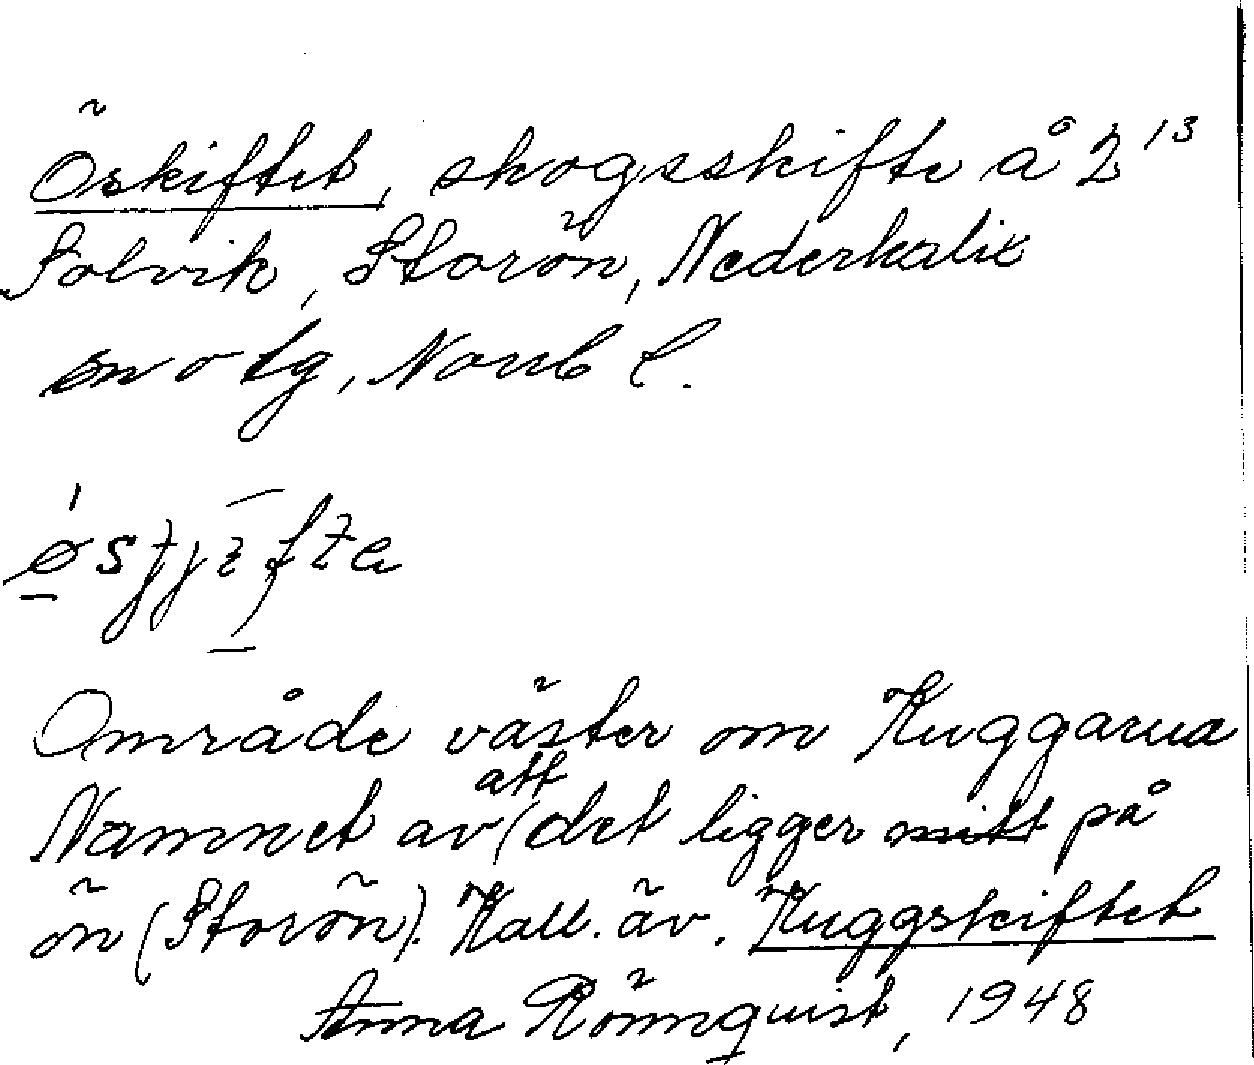 Öskiftet, skogsskifte å 2¹³
Solvik, Storön, Nederkalix
sn o tg, Norrb l.
Område väster om Kuggarna
Namnet av att det ligger på
ön (Storön). Kall. äv. Kuggskiftet
Anna Rönnquist, 1948